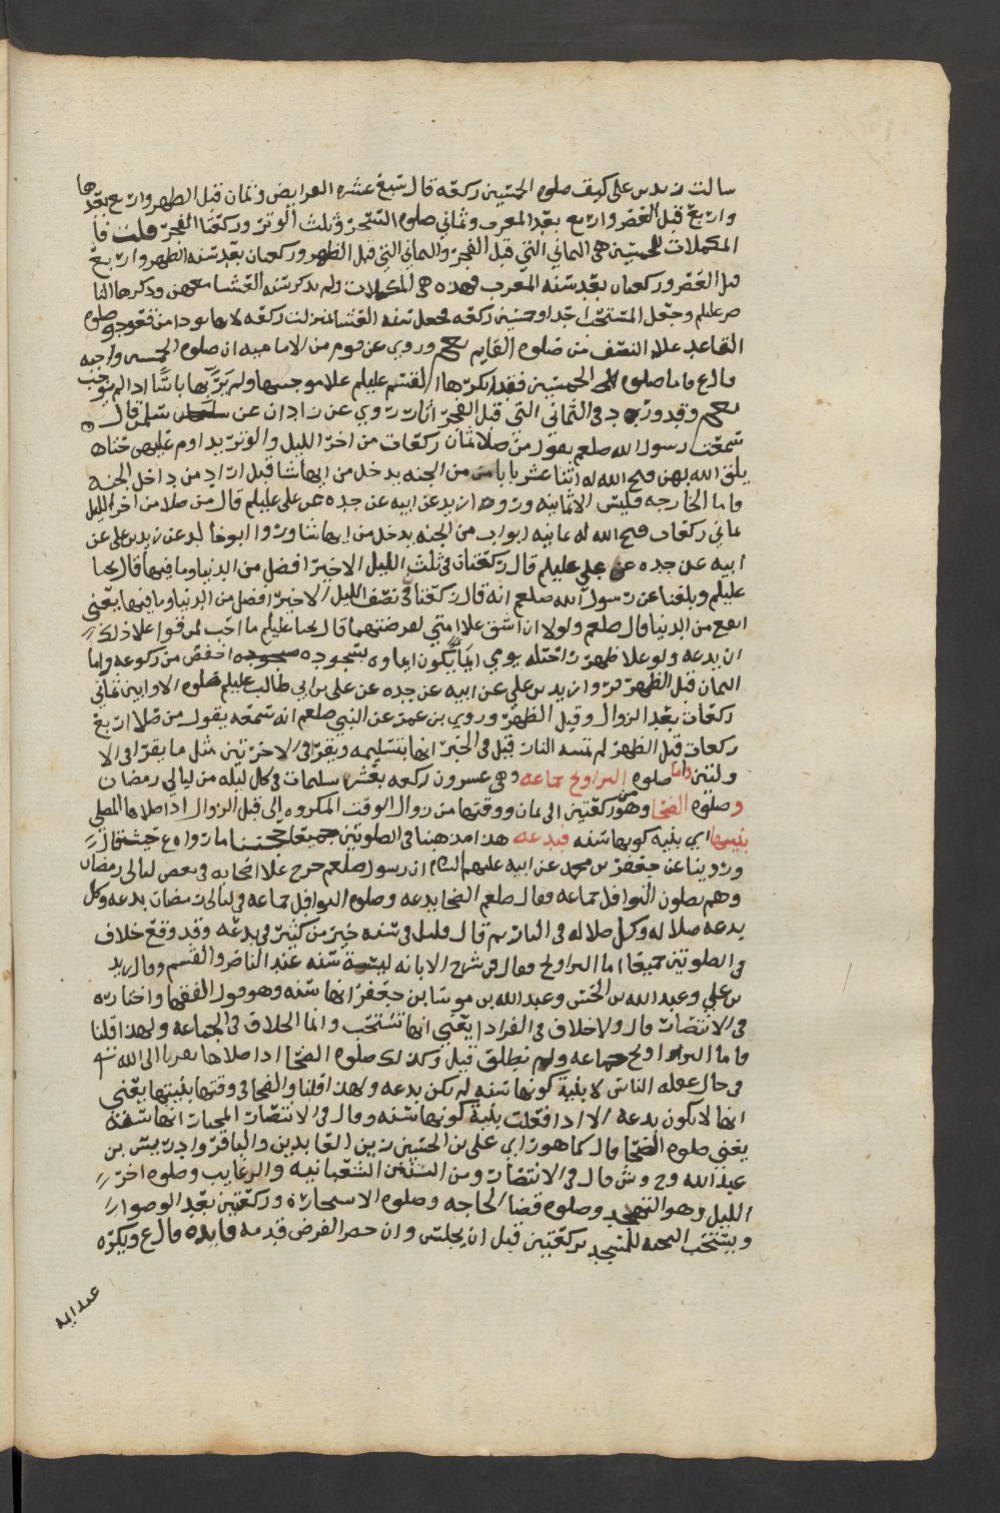 سالت زيد بن علي كيف صلوه الخمسين ركعه قال سبع عشره الفرايض وثمان قبل الظهر واربع بعدها
واربع قبل العصر واربع بعد المغرب وثماني صلوه السحر وثلث الوتر وركعتا الفجر قلت فا
المكملات للخمسين هي الثماني التي قبل الفجر والثماني التي قبل الظهر وركعتان بعد سنه الظهر واربع
قبل العصر وركعتان بعد سنه المغرب فهذه هي المكملات ولم يذكر سنه العشا معهن وذكرها النا
صر عليلم وجعل المستحب احدا وخمسين ركعه فجعل سنه العشا بمنزلت ركعه لانها تودا من قعود وصلوه
القاعد علا النصف من صلوه القايم وروي عن قوم من الاماميه ان صلوه الخمسين واجبه
قال ع واما صلوه الخمسين فقد انكرها القسم عليلم علا موجبها ولم يرَ بها باسًا اذا لم توجب
وقد ورد في الثماني التي قبل الفجر اثار روي عن زاذان عن سلمن قال
سمعت رسول الله صلعم يقول من صلا ثمان ركعات من اخر الليل والوتر يداوم عليهن حتا
يلقى الله بهن فتح الله له اثنا عشر بابا من الجنه يدخل من ايها شا قيل اراد من داخل الجنه
واما الخارجه فليس الا ثمانيه وروا زيد عن ابيه عن جده عن علي عليلم قال من صلا من اخر الليل
ثماني ركعات فتح الله له ثمانيه ابواب من الجنه يدخل من ايها شا وروا ابو خالد عن زيد بن علي عن
ابيه عن جده عن علي عليلم قال ركعتان في ثلث الليل الاخير افضل من الدنيا وما فيها قال يحيا
عليلم وبلغنا عن رسول الله صلعم انه قال ركعتا في نصف الليل الاخير افضل من الدنيا وما فيها يعني
انفع من الدنيا وقال صلعم ولولا ان اشق علا امتي لفرضتهما قال يحيا عليلم ما احب لمن قوا علا ذلك
ان يدعه ولو علا ظهر راحلته يومي ايماً يكون ايماوه بسجوده اخفض من ركوعه واما
الثمان قبل الظهر فروا زيد بن علي عن ابيه عن جده عن علي بن ابي طالب عليلم صلوه الاوابين ثماني
ركعات بعد الزوال وقبل الظهر وروي بن عمر عن النبي صلعم انه سمعه يقول من صلا اربع
ركعات قبل الظهر لم تمسه النار قيل في الخبر انها بتسليمه ويقرا في الاخرتين مثل ما يقرا في الا
ولتين واما صلوه التراويح جماعه وهي عشرون ركعه بعشر سلمات في كل ليله من ليالي رمضان
وصلوه الضحا وهو من ركعتين الى ثمان ووقتها من زوال الوقت المكروه إلى قبل الزوال اذا صلاها المصلي
بنيتها اي بنيه كونها سنه فبدعه هذا مذهبنا في الصلوتين جميعا حجتنا ما رواه ع حيث قال
وروينا عن جعفر بن محمد عن ابيه عليهم السلام ان رسول صلعم خرج علا اصحابه في بعض ليالي رمضان
وهم يصلون النوافل جماعه فقال صلعم الضحا بدعه وصلوه النوافل جماعه في ليالي رمضان بدعه وكل
بدعه ضلاله وكل ضلاله في النار ثم قال قليل في سنه خير من كثير في بدعه وقد وقع خلاف
في الصلوتين جميعا اما التراويح فقال في شرح الابانه ليست سنه عند الناصر والقسم وقال زيد
بن علي وعبد الله بن الحسن وعبد الله بن موسا بن جعفر انها سنه وهو قول الفقها واختاره
في الانتصار قال ولا خلاف في الفرادا يعني انها تستحب وانما الخلاف في الجماعه ولهذا قلنا
واما التراويح جماعه ولم نطلق قيل وكذلك صلوه الضحا اذا صلاها تقربا الى الله
في حال غفله الناس لا بنية كونها سنه لم تكن بدعه ولهذا قلنا والضحا في وقتها بنيتها يعني
انها لا تكون بدعه الا اذا فعلت بنية كونها سنه وقال في الانتصار المختار انها سنه
يعني صلوه الضحا قال كما هو راي علي بن الحسين زين العابدين والباقر وادريس بن
عبد الله وح وش قال في الانتصار ومن السنن الشعبانيه والرغايب وصلوه اخر
الليل وهو التهجد وصلوه قضا الحاجه وصلوه الاستخاره وركعتين بعد الوضوا
ويستحب التحيه للمسجد بركعتين قبل ان يجلس وان حضر الفرض قدمه فايده قال ع ويكره
عند ابه